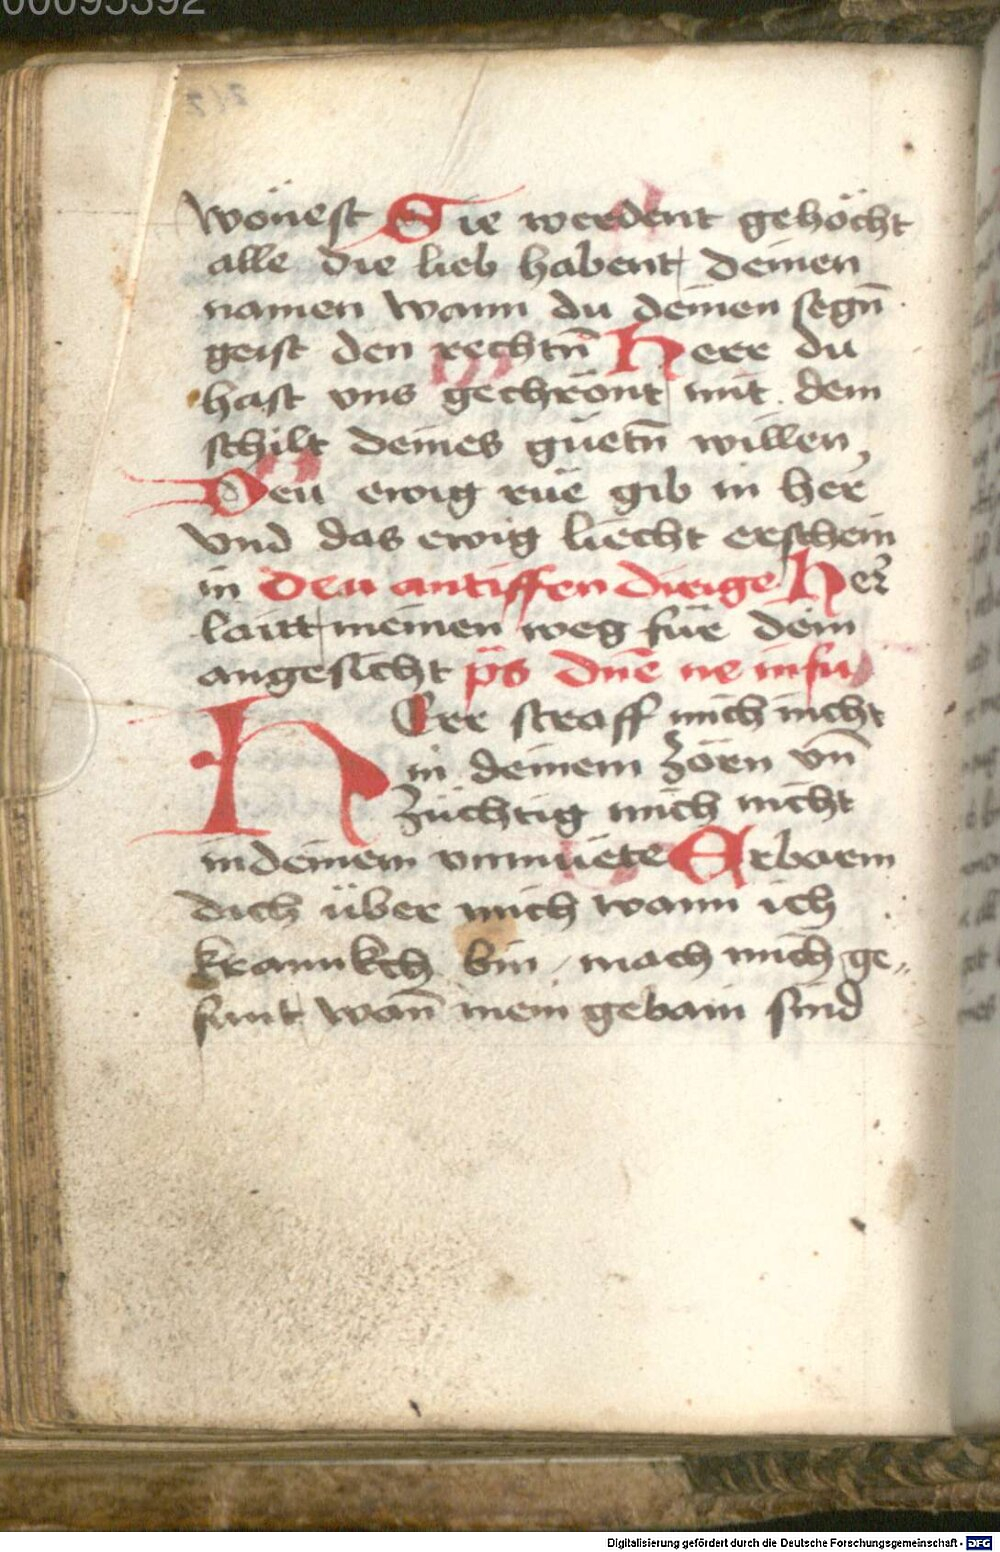 00095392
wönest Sie werdent gehöcht
alle die lieb habent deinen
namen wann du deinen segn̄
geist den rechtn̄ Herr du
hast vns gechrönt mit dem
schilt deines güetn̄ willen
Den ewig rüe gib in her
vnd das ewig liecht erschein
in den antiffen dirige Her
laitt meinen weg für dein
angesicht ps dn̄e ne in fu
HErr straff mich nicht
in deinem zörn vn̄
züchtig mich nicht
in deinem vnmuete Erbarm
dich über mich wann ich
krannkch bin mach mich ge„
sunt wan̄ mein gebain sind
Digitalisierung gefördert durch die Deutsche Forschungsgemeinschaft - DFG